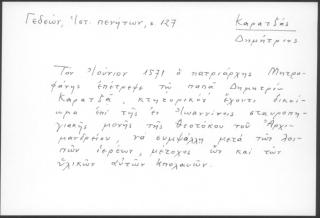 Γεδεών, Ἱστ. πενήτων, σ. 127
Καρατζᾶς
Δημήτριος
Τὸν Ἰούνιον 1571 ὁ πατριάρχης Μητρο-
φάνης ἐπέτρεψε τῷ παπᾷ Δημητρίῳ
Καρατζᾷ, κτητορικὸν ἔχοντι δικαί-
ωμα ἐπὶ τῆς ἐν Ἰωαννίνοις σταυροπη-
γιακῆς μονῆς τῆς Θεοτόκου τοῦ Ἀρχι-
μανδρείου, νὰ συμψάλλῃ μετὰ τῶν λοι-
πῶν ἱερέων, μέτοχος ὢν καὶ τῶν
ὑλικῶν αὐτῶν ἀπολαυῶν.